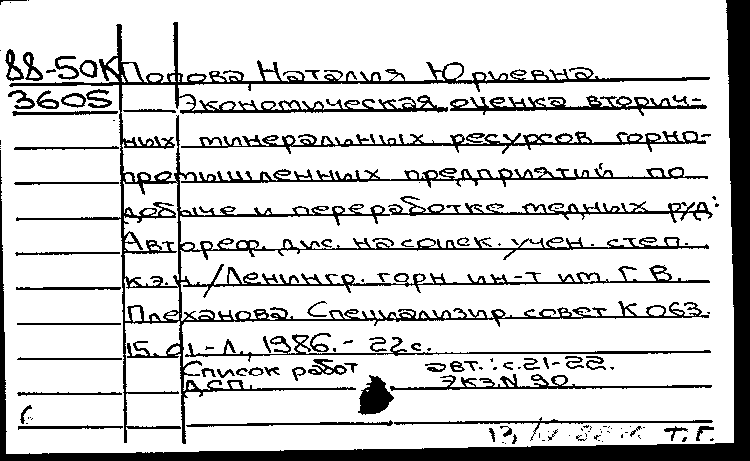 88-50К Попова, Наталия Юриевна.
3605 Экономическая оценка вторич-
ных минеральных ресурсов горно-
промышленных предприятий по
добыче и переработке медных руд:
Автореф. дис. на соиск. учен. степ.
к.э.н./Ленингр. горн. ин-т им. Г. В.
Плеханова. Специализир. совет К 063.
15. 01.-Л., 1986.- 22 с.
Список работ авт.: с.21-22.
ДСП. Экз.N 90.
13/IV-88 Т.Г.